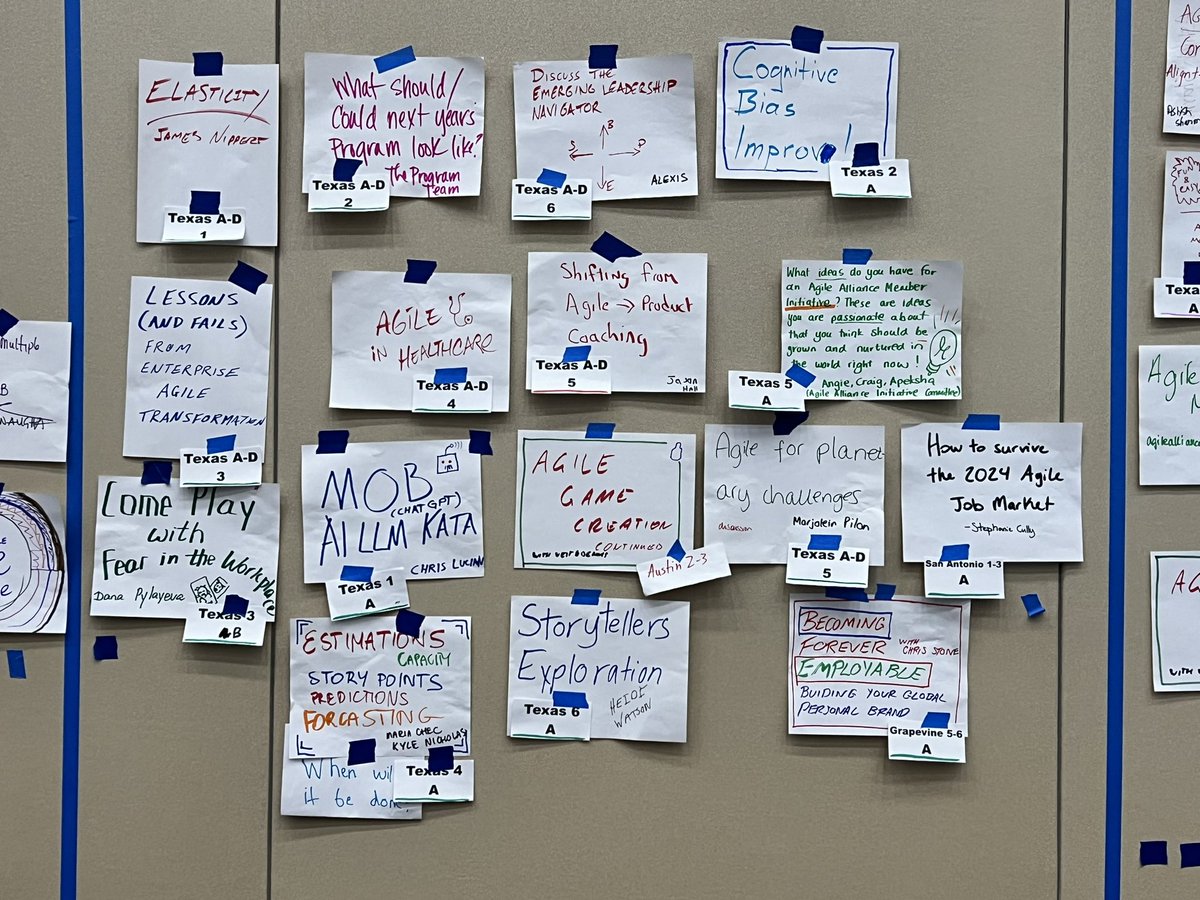 ELASTICITY
JAMES NIPPERT
Texas A-D
1
What should/
Could next years
Program look like?
The Program
Team
Texas A-D
2
DISCUSS THE
EMERGING LEADERSHIP
NAVIGATOR
B
S
D
E
ALEXIS
Texas A-D
6
Cognitive
Bias
Improv!
Texas 2
A
LESSONS
(AND FAILS)
FROM
ENTERPRISE
AGILE
TRANSFORMATION
Texas A-D
3
AGILE
IN HEALTHCARE
Texas A-D
4
Shifting from
Agile → Product
Coaching
Jason
Hall
Texas A-D
5
What ideas do you have for
an Agile Alliance Member
Initiative? These are ideas
you are passionate about
that you think should be
grown and nurtured in
the world right now!
Angie, Craig, Apeksha
(Agile Alliance Initiative Committee)
Texas 5
A
Come Play
with
Fear in the Workplace
Dana Pylayeva
Texas 3
B
MOB
(CHAT GPT)
AI LLM KATA
CHRIS LUCIAN
Texas 1
A
AGILE
GAME
CREATION
CONTINUED
Austin 2-3
Agile for planet-
ary challenges
discussion
Marjolein Pilon
Texas A-D
5
How to survive
the 2024 Agile
Job Market
-Stephanie Cully
San Antonio 1-3
A
ESTIMATIONS
CAPACITY
STORY POINTS
PREDICTIONS
FORCASTING
MARIA CHEC
KYLE NICHOLAS
When wil
it be done
Texas 4
A
Storytellers
Exploration
HEIDE
WATSON
Texas 6
A
BECOMING
FOREVER
WITH
CHRIS STONE
EMPLOYABLE
BUIDING YOUR GLOBAL
PERSONAL BRAND
Grapevine 5-6
A
multiple
Agile
agilealliance